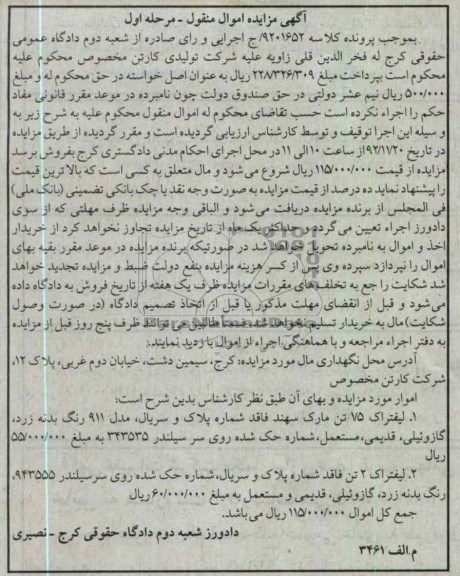 آگهی مزایده اموال منقول - مرحله اول
بموجب پرونده کلاسه ۹۲۰۱۶۵۲/ج اجرایی و رای صادره از شعبه دوم دادگاه عمومی
حقوقی کرج له فخر الدین قلی زاویه علیه شرکت تولیدی کارتن مخصوص محکوم علیه
محکوم است بپرداخت مبلغ ۲۲۸/۳۲۶/۳۰۹ ریال به عنوان اصل خواسته در حق محکوم له و مبلغ
۵۰۰/۰۰۰ ریال نیم عشر دولتی در حق صندوق دولت چون نامبرده در موعد مقرر قانونی مفاد
حکم را اجراء نکرده است حسب تقاضای محکوم له اموال منقول محکوم علیه به شرح زیر به
و سیله این اجرا توقیف و توسط کارشناس ارزیابی گردیده است و مقرر گردیده از طریق مزایده
در تاریخ ۹۲/۱۱/۲۰ از ساعت ۱۰ الی ۱۱ در محل اجرای احکام مدنی دادگستری کرج بفروش برسد
مزایده از قیمت ۱۱۵/۰۰۰/۰۰۰ ریال شروع می شود و مال متعلق به کسی است که بالا ترین قیمت
را پیشنهاد نماید ده درصد از قیمت مزایده به صورت وجه نقد یا چک بانکی تضمینی (بانک ملی)
فی المجلس از برنده مزایده دریافت می شود و الباقی وجه مزایده ظرف مهلتی که از سوی
دادورز اجراء تعیین می گردد و حداکثر یک ماه از تاریخ مزایده تجاوز نخواهد کرد از خریدار
اخذ و اموال به نامبرده تحویل خواهد شد در صورتیکه برنده مزایده در موعد مقرر بقیه بهای
اموال را نپردازد سپرده وی پس از کسر هزینه مزایده بنفع دولت ضبط و مزایده تجدید خواهد
شد شکایت را جع به تخلف های مقررات مزایده ظرف یک هفته از تاریخ فروش به دادگاه داده
می شود و قبل از انقضای مهلت مذکور یا قبل از اتخاذ تصمیم دادگاه (در صورت وصول
شکایت) مال به خریدار تسلیم نخواهد شد ضمنا طالبین می توانند ظرف پنج روز قبل از مزایده
به دفتر اجراء مراجعه و با هماهنگی اجراء از اموال بازدید نمایند.
آدرس محل نگهداری مال مورد مزایده: کرج، سیمین دشت، خیابان دوم غربی، پلاک ۱۲،
شرکت کارتن مخصوص
اموار مورد مزایده و بهای آن طبق نظر کارشناس بدین شرح است:
۱. لیفتراک ۷/۵ تن مارک سهند فاقد شماره پلاک و سریال، مدل ۹۱۱ رنگ بدنه زرد،
گازوئیلی، قدیمی، مستعمل، شماره حک شده روی سر سیلندر ۳۴۳۵۳۵ به مبلغ ۵۵/۰۰۰/۰۰۰
ریال
۲. لیفتراک ۲ تن فاقد شماره پلاک و سریال، شماره حک شده روی سرسیلندر ۹۴۳۵۵۵،
رنگ بدنه زرد، گازوئیلی، قدیمی و مستعمل به مبلغ ۶۰/۰۰۰/۰۰۰ ریال
جمع کل اموال ۱۱۵/۰۰۰/۰۰۰ ریال می باشد.
دادورز شعبه دوم دادگاه حقوقی کرج - نصیری
م.الف ۳۴۶۱